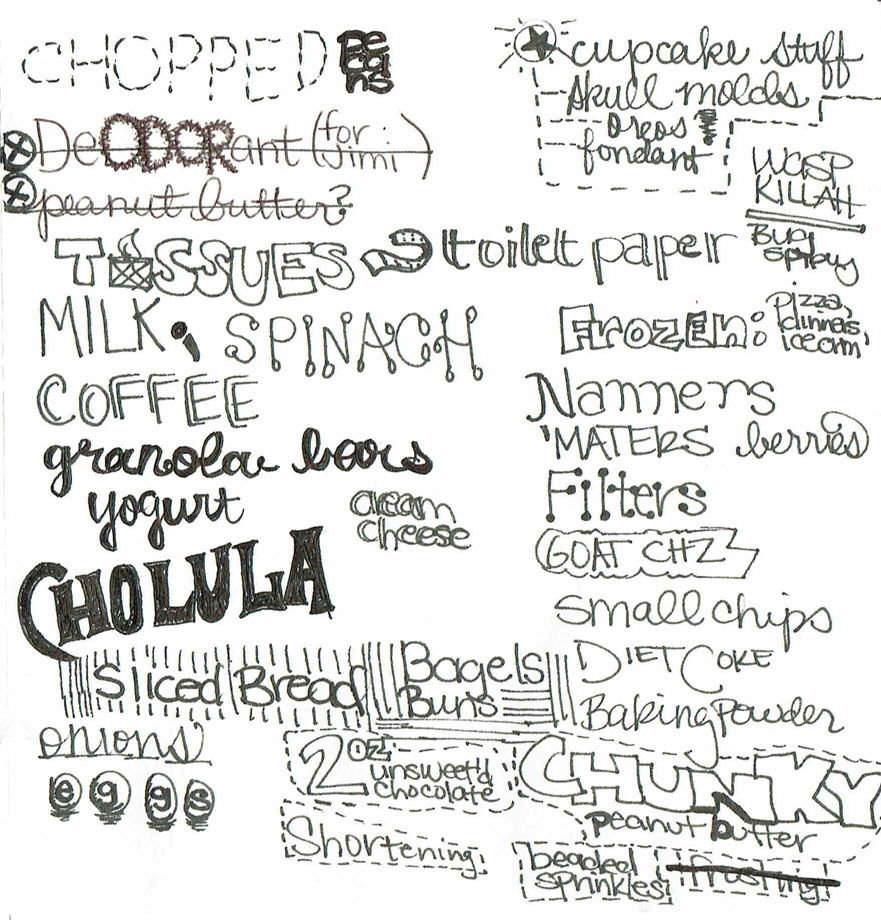 CHOPPED Pecans
cupcake stuff
- skull molds
- Oreos
- fondant
DeODORant (for Jimi)
peanut butter?
WASP
KILLAH
Bug
spray
TISSUES
toilet paper
MILK, SPINACH
FROZEN:
pizza,
dinners,
icecrm
COFFEE
Nanners
granola bars
'MATERS berries
yogurt
cream
cheese
Filters
GOAT CHZ
CHOLULA
small chips
Sliced Bread
Bagels
Buns
DIET COKE
Baking Powder
onions
eggs
2 oz
unsweet'd
chocolate
CHUNKY
peanut butter
Shortening
beaded
sprinkles
frosting